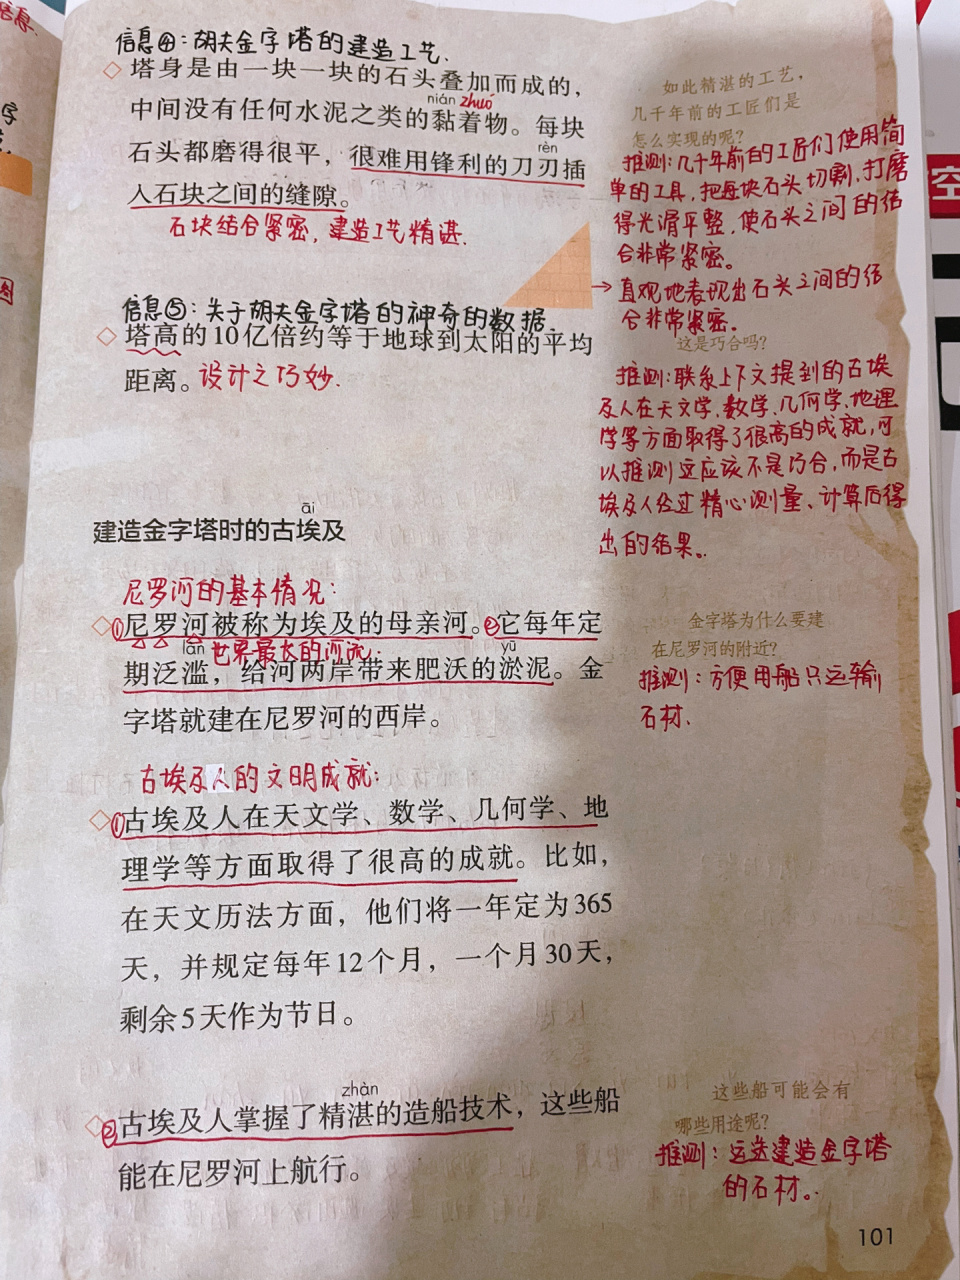 信息④：胡夫金字塔的建造工艺.
塔身是由一块一块的石头叠加而成的，
nián zhuó
中间没有任何水泥之类的黏着物。每块
rèn
石头都磨得很平，很难用锋利的刀刃插
入石块之间的缝隙。
石块结合紧密，建造工艺精湛.
如此精湛的工艺，
几千年前的工匠们是
怎么实现的呢？
推测：几千年前的工匠们使用简
单的工具，把每块石头切割，打磨
得光滑平整，使石头之间的结
合非常紧密。
→直观地表现出石头之间的结
合非常紧密。
信息⑤：关于胡夫金字塔的神奇的数据
塔高的10亿倍约等于地球到太阳的平均
距离。设计之巧妙.
这是巧合吗？
推测：联系上下文提到的古埃
及人在天文学、数学、几何学、地理
学等方面取得了很高的成就，可
以推测这应该不是巧合，而是古
埃及人经过精心测量、计算后得
出的结果。
āi
建造金字塔时的古埃及
尼罗河的基本情况：
①尼罗河被称为埃及的母亲河。②它每年定
世界最大的河流.
làn yū
期泛滥，给河两岸带来肥沃的淤泥。金
字塔就建在尼罗河的西岸。
金字塔为什么要建
在尼罗河的附近？
推测：方便用船只运输
石材.
古埃及人的文明成就：
①古埃及人在天文学、数学、几何学、地
理学等方面取得了很高的成就。比如，
在天文历法方面，他们将一年定为365
天，并规定每年12个月，一个月30天，
剩余5天作为节日。
zhàn
②古埃及人掌握了精湛的造船技术，这些船
能在尼罗河上航行。
这些船可能会有
哪些用途呢？
推测：运送建造金字塔
的石材。
101
空